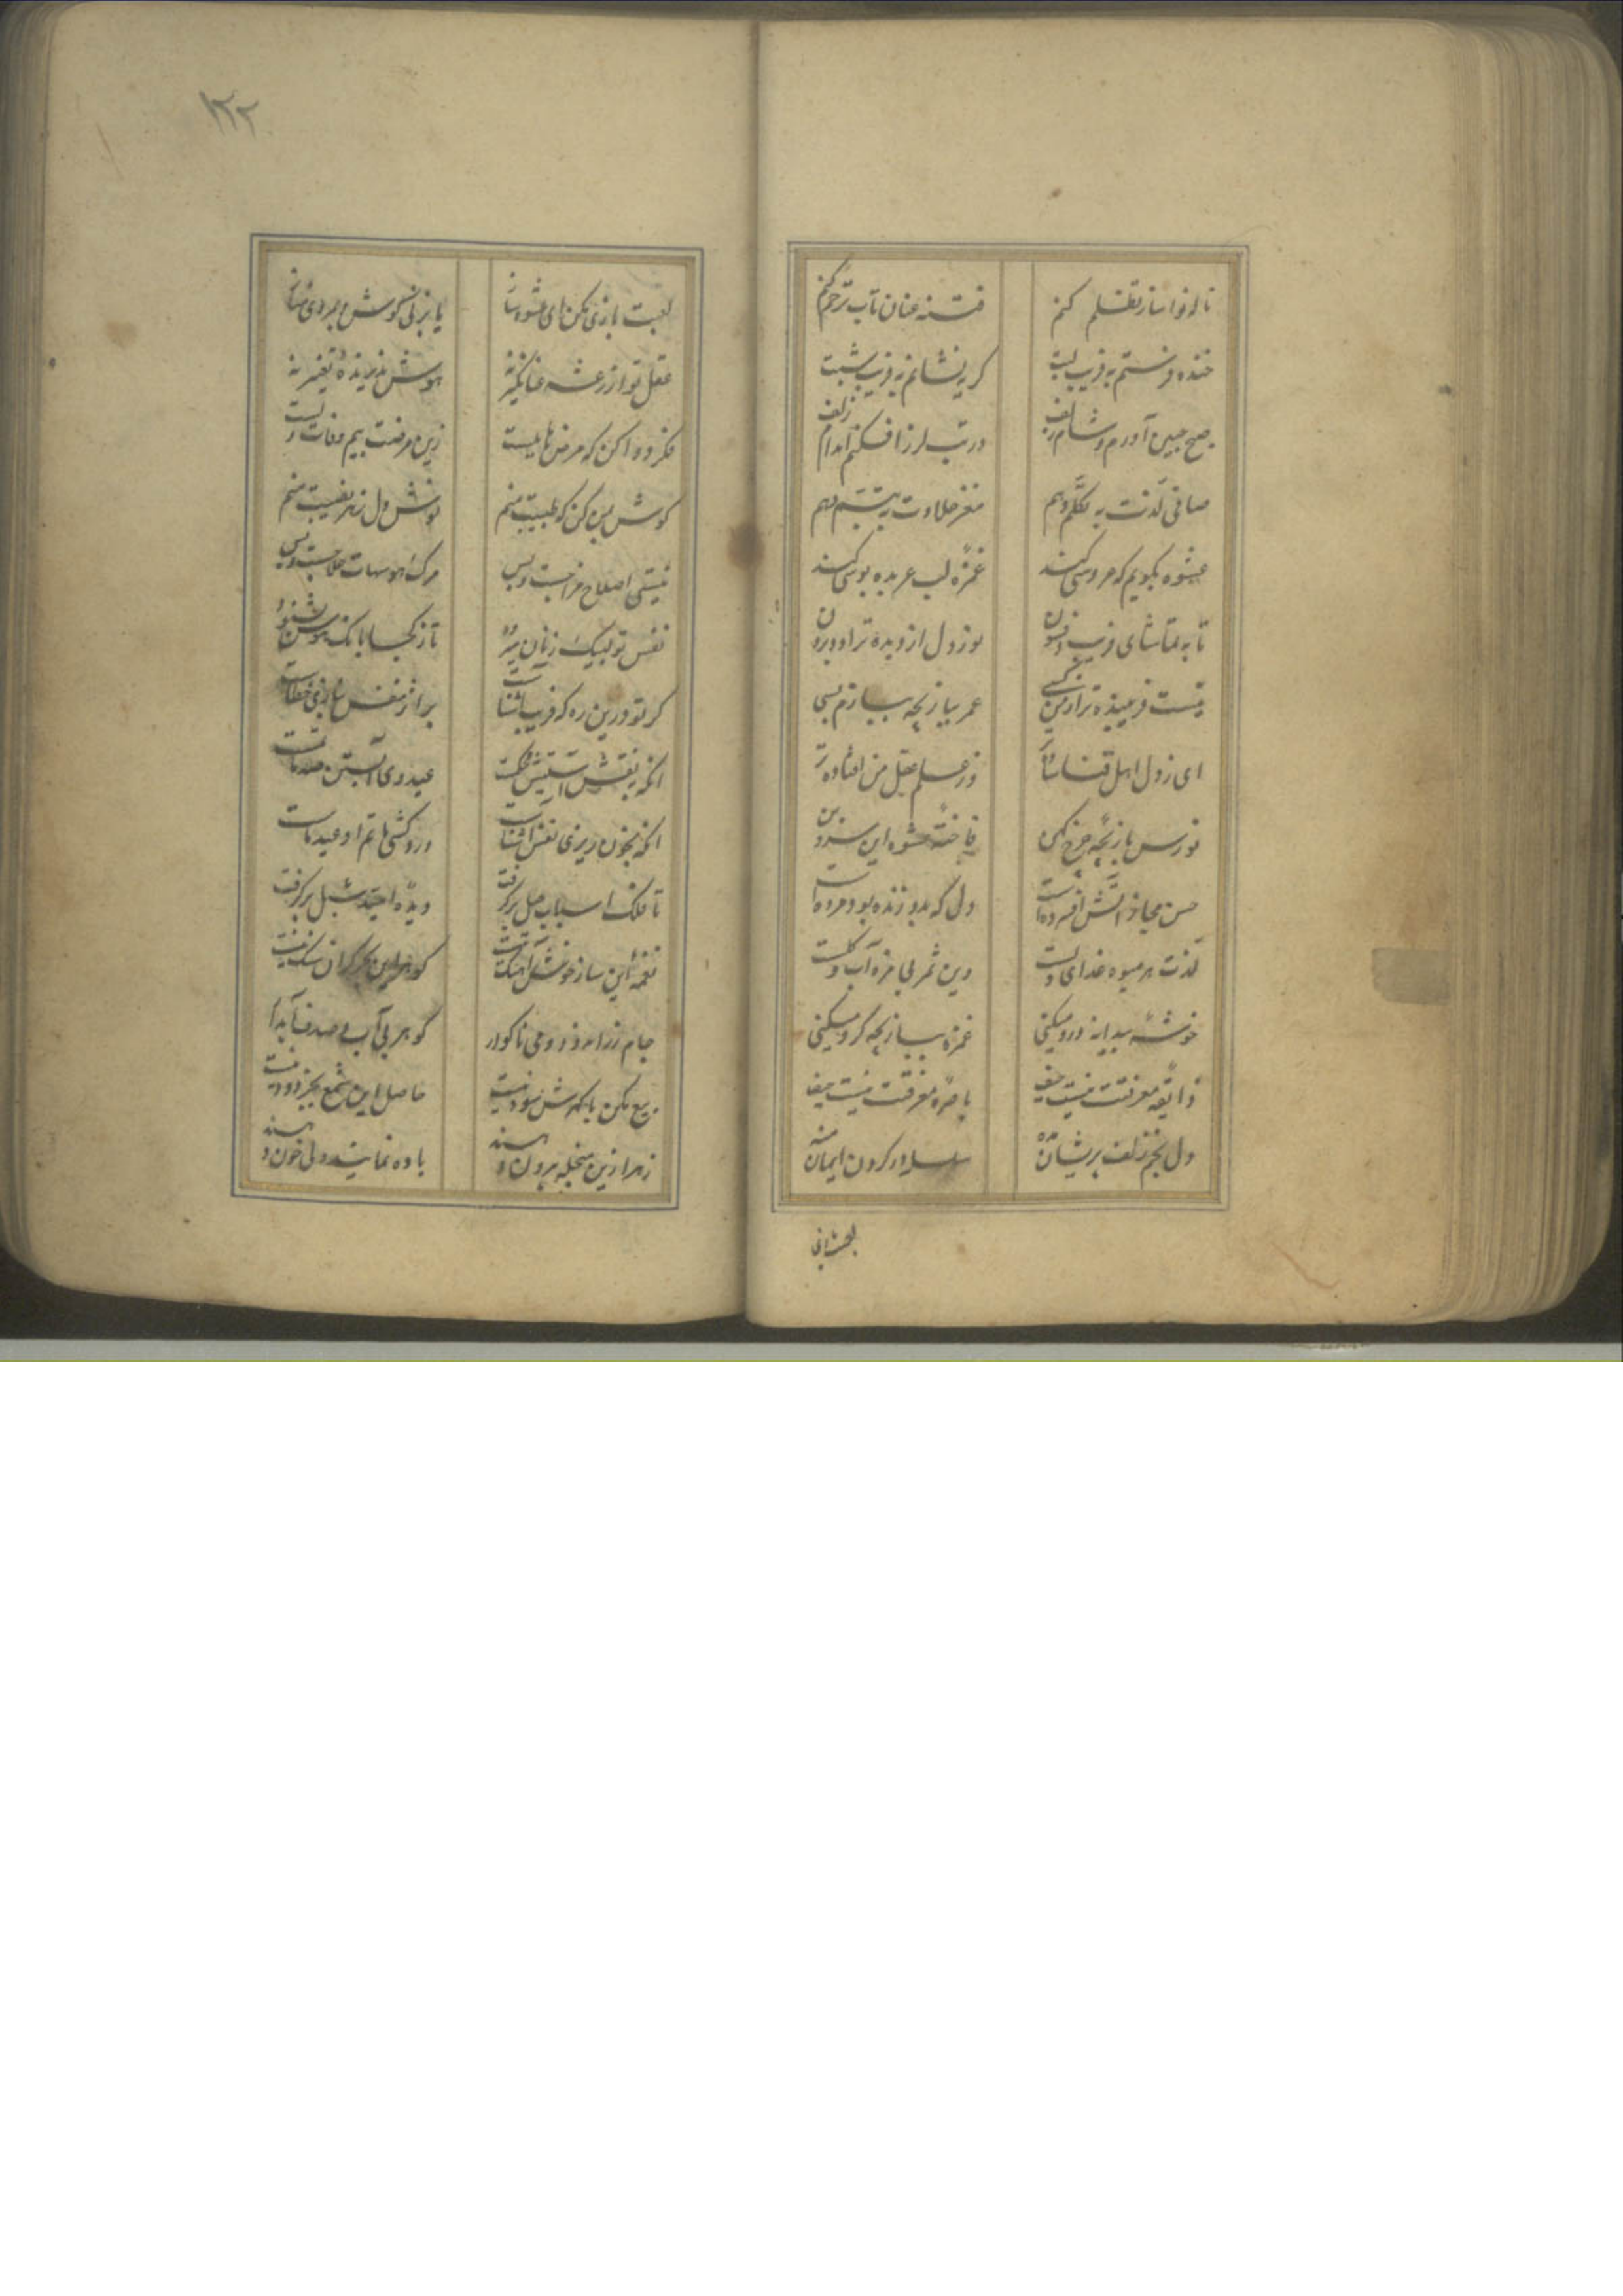 ناله نوا ساز تظلم کنم
فتنه عنان تاب ترحم کنم
خنده فرستم به فریب لبت
گریه نشانم به فریب شبت
صبح جبین آورم و شام زلف
در تب لرز افکنم اندام زلف
صافی لذت به تکلم دهم
مغز حلاوت به تبسم دهم
عشوه بگویم که عروسی کند
غمزه لب عربده بوسی کند
تا به تماشای فریب و فسون
نور دل از دیده تراود برون
نیست فریبنده تر از من کسی
عمر ببازیچه ببازم بسی
ای ز دل اهل قناعت
وز علم عقل من افتاده تر
نورس بازیچه چرخ کهن
فاخته عشوه این سروبن
حسن مجاز آتش افسرده است
دل که بدو زنده بود مرده است
لذت هر میوه غذای دلست
وین ثمر بی مزه آب و گلست
خوشه بیدانه درو میکنی
غمزه ببازیچه گرو میکنی
ذایقه معرفتت نیست حیف
باصره معرفتت نیست حیف
دل بخم زلف پریشان منه
سلسله در گردن ایمان منه
لعبت بازی مکن ای عشوه ساز
یا بزنی گوش
عقل تو از رعشه عنانگیر نه
هوش پذیرنده تغییر نه
فکر دوا کن که مرض هایلست
زین مرضت بیم وفات دلست
گوش بمن کن که طبیبت منم
نوش دل زهر نصیبت منم
نیستی اصلاح مزاجت و بس
مرگ هوسهات علاجت و بس
نفس تو لبیک زنان میرود
تا ز کجا بانک هوس بشنود
گر تو درین ره که فریب آشناست
بر اثر نفس
آنکه بنقش
عید وی آبستن صد ماتمست
آنکه بخون ریزی نفس آشناست
در روش ما تم او عید ماست
تا فلک اسباب میل برگرفت
دیده امید سبل برگرفت
نغمه این ساز خوش آهنگ نیست
گوهر این بحر گران سنگ نیست
جام زر اندود و می ناگوار
گوهر بی آب و صدف آبدار
بیع مکن مایه کش سود نیست
حاصل این شمع بجز دود نیست
زهر ازین منجله بیرون دهند
باده نمایند ولی خون دهند
۱۲۲